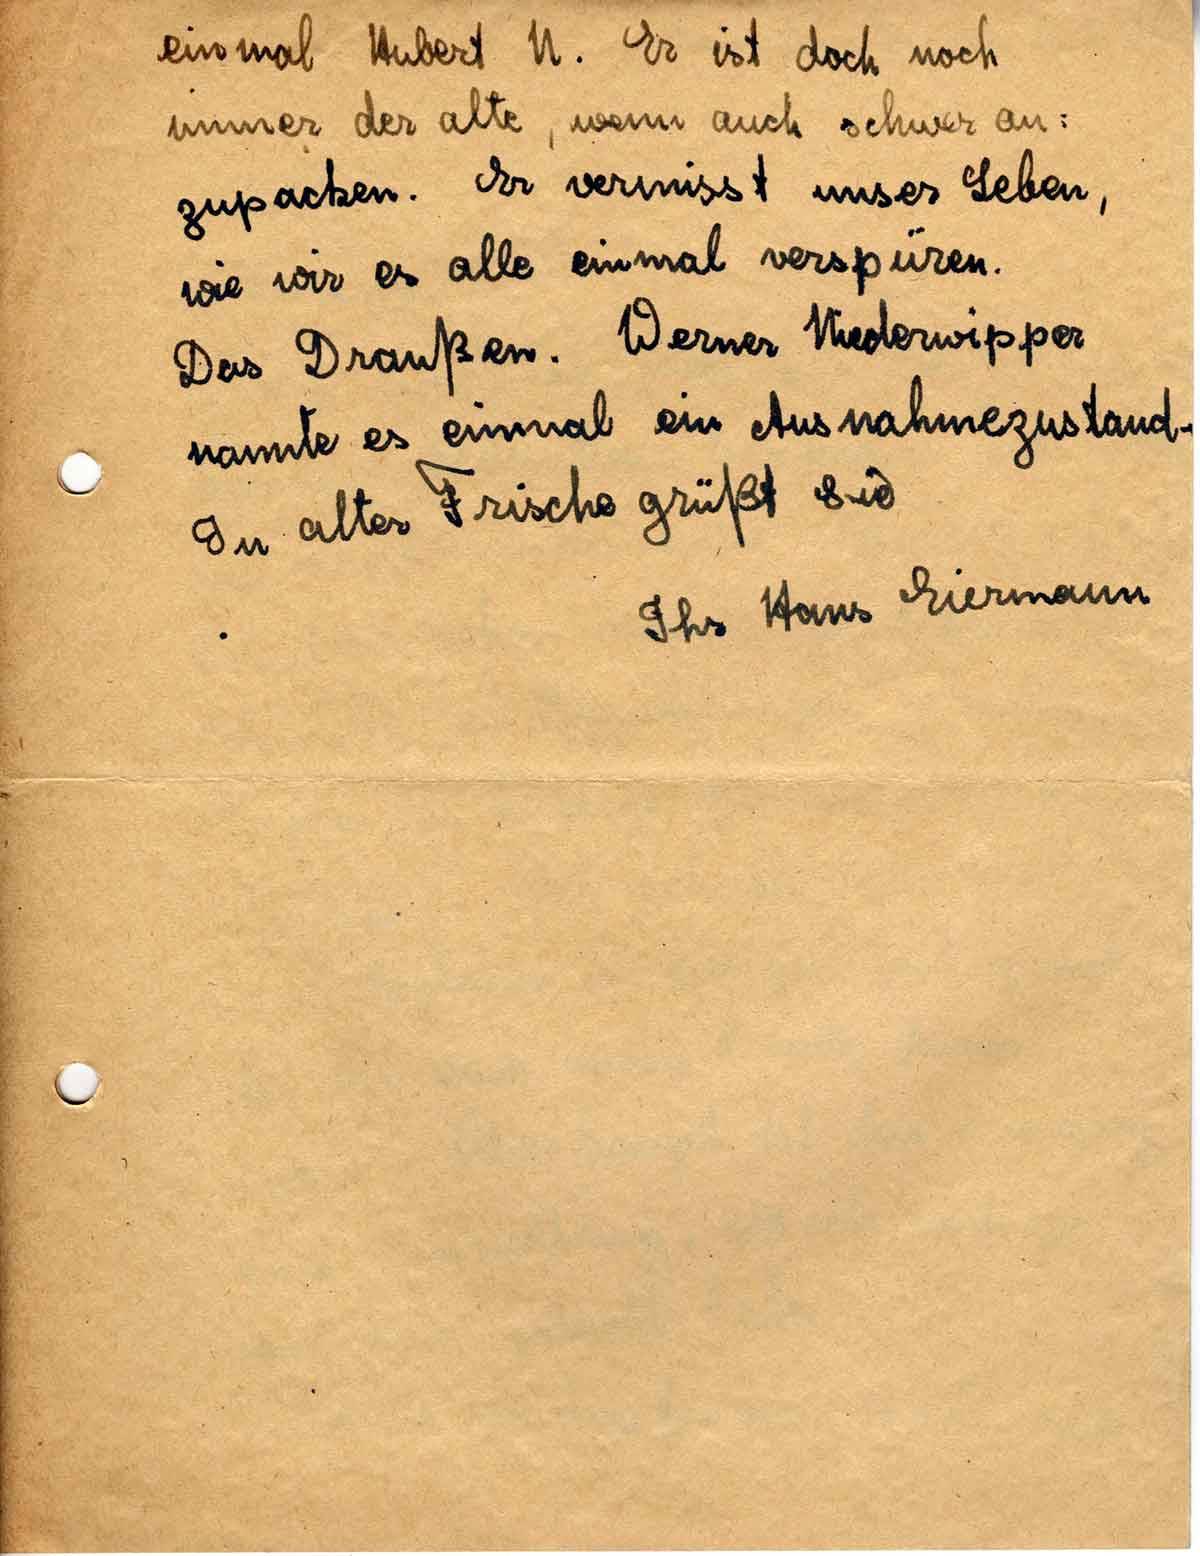 einmal Hubert N. Er ist doch noch
immer der alte, wenn auch schwer an:
zupacken. Er vermisst unser Leben,
wie wir es alle einmal verspüren.
Das Draußen. Werner Niederwipper
nannte es einmal ein Ausnahmezustand.
In alter Frische grüßt Sie
Ihr Hans Eiermann